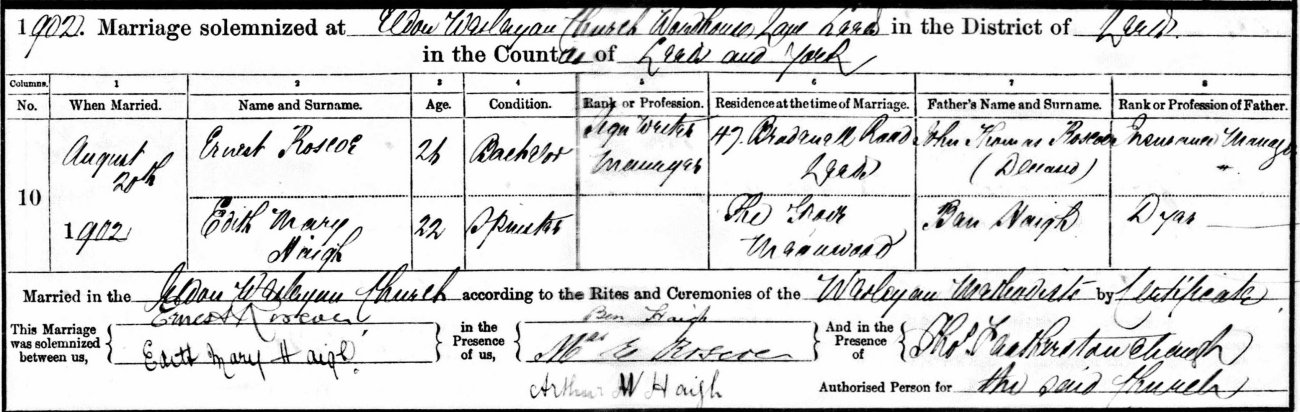 1902. Marriage solemnized at Eldon Wesleyan Church Woodhouse Lane Leeds in the District of Leeds
in the Counties of Leeds and York
Columns. 1 2 3 4 5 6 7 8
No. When Married. Name and Surname. Age. Condition. Rank or Profession. Residence at the time of Marriage. Father's Name and Surname. Rank or Profession of Father.
10
August 20th 1902
Ernest Roscoe 26 Bachelor Sign Writer Manager 47. Road Leeds John Thomas Roscoe (Deceased) Insurance Manager
Edith Mary Haigh 22 Spinster The Grove Meanwood Ben Haigh Dyer
Married in the Eldon Wesleyan Church according to the Rites and Ceremonies of the Wesleyan Methodists by Certificate
This Marriage was solemnized between us,
Ernest Roscoe
Edith Mary Haigh
in the Presence of us,
Ben Haigh
Mrs E Roscoe
Arthur W Haigh
And in the Presence of
Thos
Authorised Person for the said Church